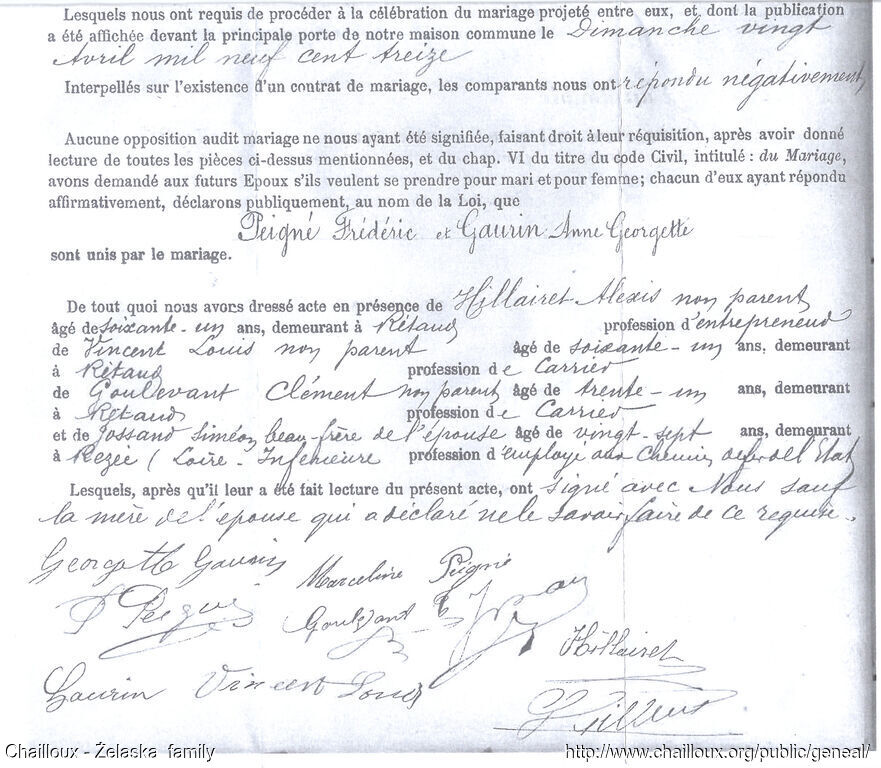 Lesquels nous ont requis de procéder à la célébration du mariage projeté entre eux, et dont la publication
a été affichée devant la principale porte de notre maison commune le Dimanche vingt
Avril mil neuf cent treize
Interpellés sur l'existence d'un contrat de mariage, les comparants nous ont répondu négativement,
Aucune opposition audit mariage ne nous ayant été signifiée, faisant droit à leur réquisition, après avoir donné
lecture de toutes les pièces ci-dessus mentionnées, et du chap. VI du titre du code Civil, intitulé : du Mariage,
avons demandé aux futurs Epoux s'ils veulent se prendre pour mari et pour femme; chacun d'eux ayant répondu
affirmativement, déclarons publiquement, au nom de la Loi, que
Peigné Frédéric et Gaurin Anne Georgette
sont unis par le mariage.
De tout quoi nous avons dressé acte en présence de Hillairet Alexis non parent
âgé de soixante-un ans, demeurant à Rétaud profession d'entrepreneur
de Vincent Louis non parent âgé de soixante-un ans, demeurant
à Rétaud profession de Carrier
de Goulevant Clément non parent âgé de trente-un ans, demeurant
à Rétaud profession de Carrier
et de Jossand Siméon beau-frère de l'épouse âgé de vingt-sept ans, demeurant
à Rezée (Loire-Inférieure profession d'employé aux Chemins de fer de l'Etat
Lesquels, après qu'il leur a été fait lecture du présent acte, ont signé avec Nous sauf
la mère de l'épouse qui a déclaré ne le savoir faire de ce requise.
Georgette Gaurin
Marceline Peigné
F Peigné
Goulevant
Hillairet
Gaurin Vincent Louis
Chailloux - Żelaska family http://www.chailloux.org/public/geneal/